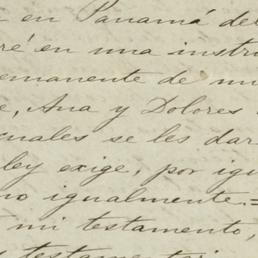 en Panamá de
ré en una instru
emanente de mi
e, Ana y Dolores
cuales se les dar
ley exige, por igu
no igualmente.=
mi testamento,
testamentari